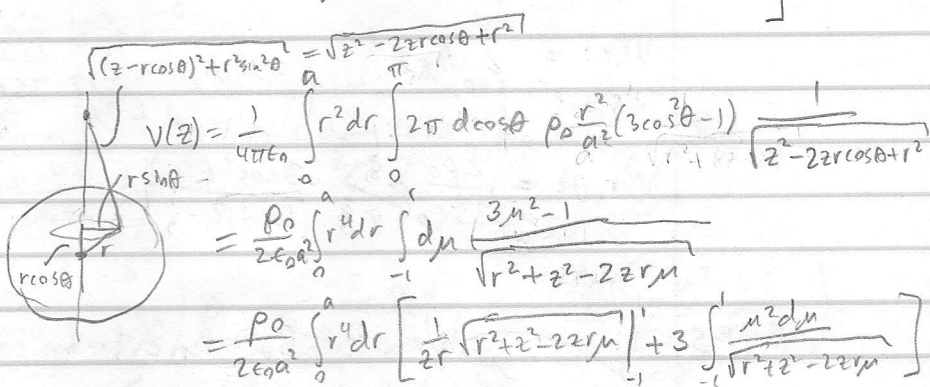 √((z-rcosθ)²+r²sin²θ) = √(z²-2zrcosθ+r²)
V(z) = 1/(4πε₀) ∫₀ᵃ r²dr ∫₀^π 2π dcosθ ρ₀ r²/a² (3cos²θ-1) 1/√(z²-2zrcosθ+r²)
rsinθ
= ρ₀/(2ε₀a²) ∫₀ᵃ r⁴dr ∫₋₁¹ dμ (3μ²-1)/√(r²+z²-2zrμ)
rcosθ
r
= ρ₀/(2ε₀a²) ∫₀ᵃ r⁴dr [ 1/(zr) √(r²+z²-2zrμ) |₋₁¹ + 3 ∫₋₁¹ μ²dμ/√(r²+z²-2zrμ) ]